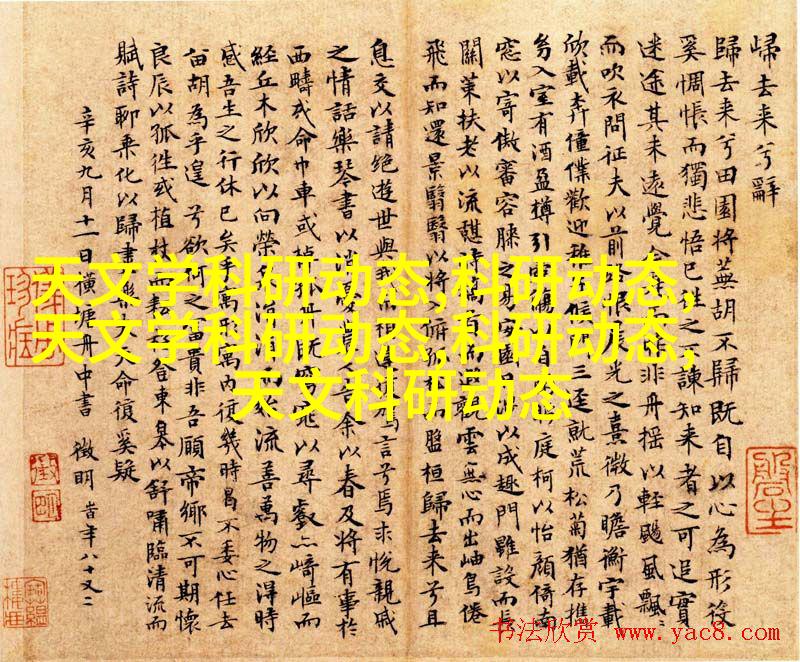 歸去来兮辭
歸去来兮田園將蕪胡不歸既自以心為形役
奚惆悵而獨悲悟已往之不諫知来者之可追實
迷途其未遠覺今是而昨非舟摇以軽颺風飄〻
而吹衣問征夫以前路恨晨光之熹微乃瞻衡宇載
欣載奔僮僕歡迎稚子候門三逕就荒松菊猶存携
幼入室有酒盈樽引壺觴以自庭柯以怡顔倚南
窓以寄傲審容膝之易安園日以成趣門雖設而長
關策扶老以流憩時矯首而雲無心而出岫鳥倦
飛而知還景翳翳以將入撫孤松而盤桓歸去来兮且
息交以請絶遊世與我而相遺駕言兮焉求悦親戚
之情話樂琴書以消憂農人告余以春及將有事於
西疇或命巾車或棹孤舟既窈窕以尋壑亦崎嶇而
經丘木欣欣以向榮泉涓涓而始流善萬物之得時
感吾生之行休已矣乎寓形宇内復幾時曷不委心任去
留胡為乎遑兮欲何之富貴非吾願帝鄉不可期懷
良辰以孤往或植杖而耘耔登東皋以舒嘯臨清流而
賦詩聊乘化以歸盡樂夫天命復奚疑
辛亥九月十一日横塘舟中書 徵明 時年八十又二
天文学科研动态,科研动态,
天文学科研动态,科研动态,
天文科研动态
书法欣赏 www.yac8.com